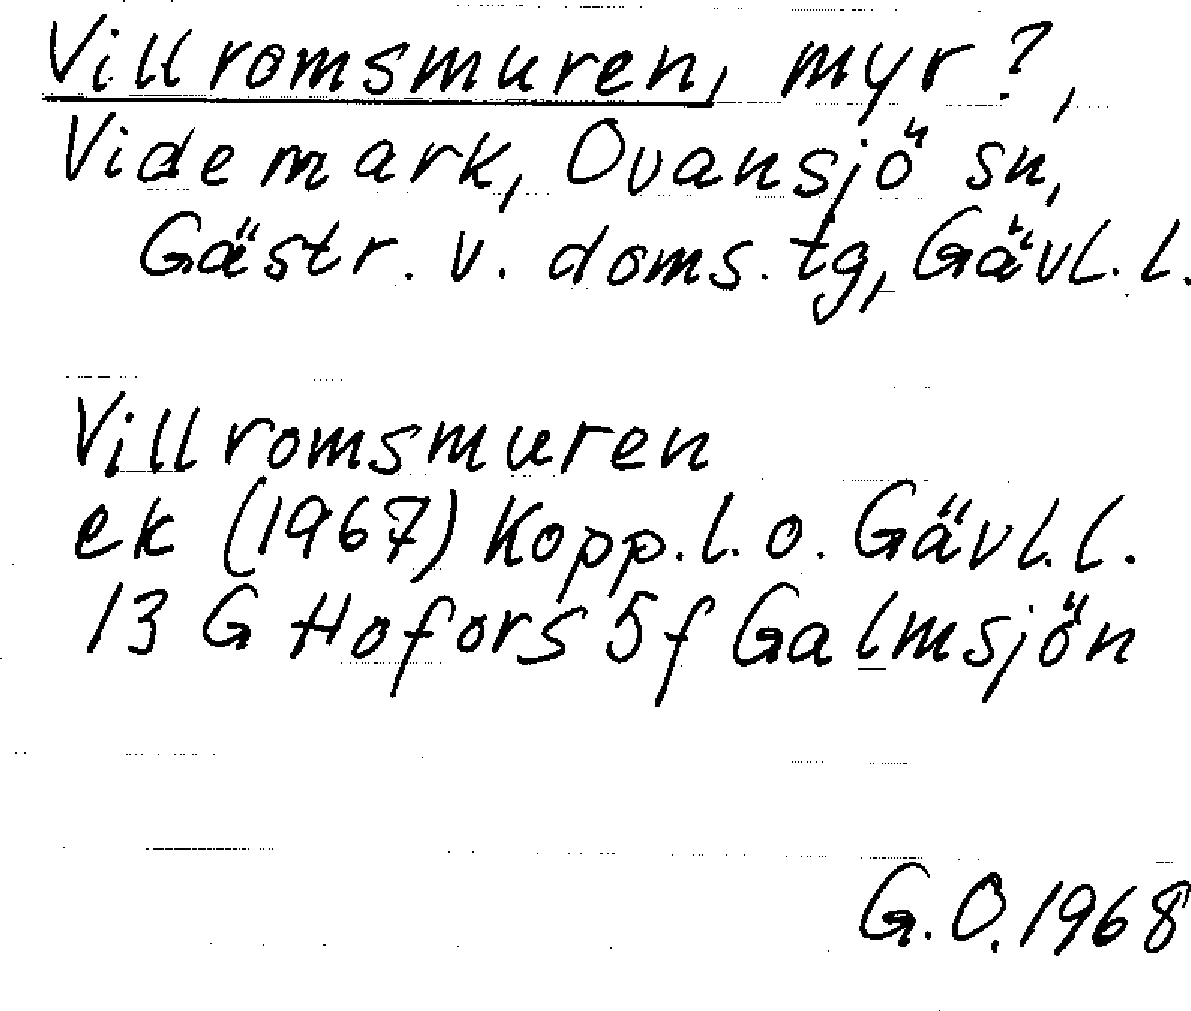 Villromsmuren, myr?,
Videmark, Ovansjö sn,
Gästr. v. doms. tg, Gävl. l.
Villromsmuren
ek (1967) Kopp. l. o. Gävl. l.
13 G Hofors 5f Galmsjön
G. O. 1968